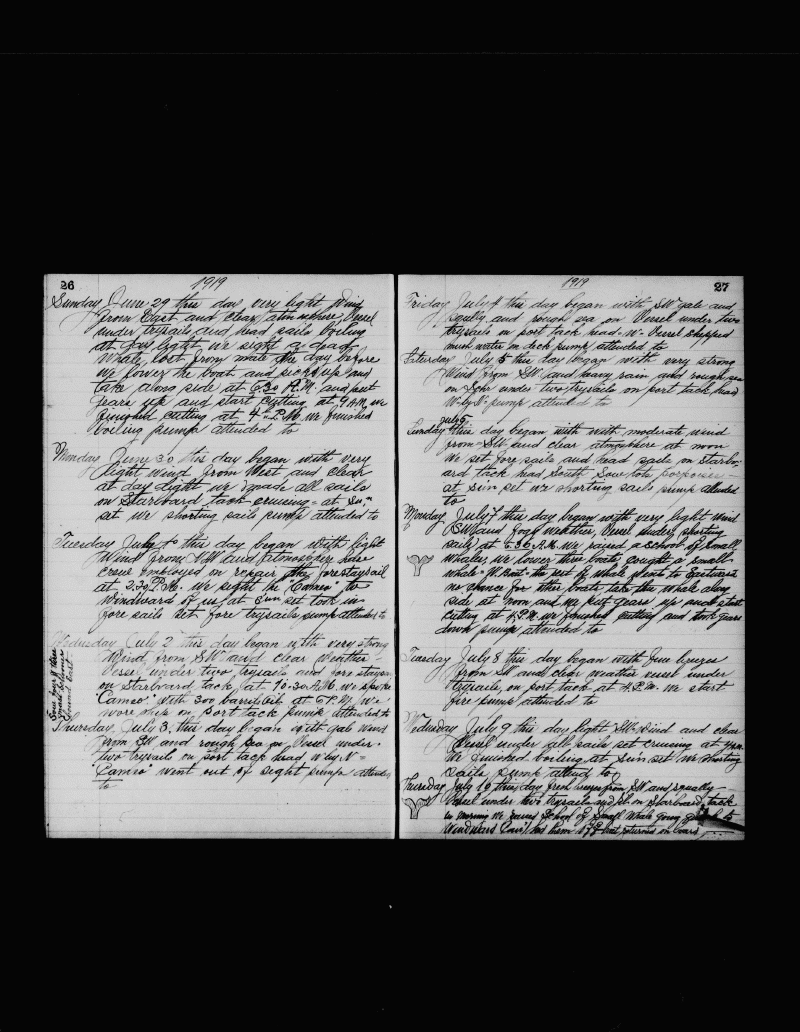 26
1919
Sunday June 29 this day very light Wind
from East and clear atmosphere Vessel
under trysails and head sails boiling
at day light we sight a dead
Whale, lost from mate the day before
we lower the boat and picked up and
take along side at 6.30 A.M. and put
gears up and start cutting at 9 A.M. we
finished cutting at 4 P.M. we finished
boiling pump attended to
Monday June 30 this day began with very
light wind from West and clear
at day light we made all sails
on Starboard tack cruising at Sun
set we shorting sails pump attended to
Tuesday July 1st this day began with light
Wind from NW and Atmosphere haze
crew employed in repair the forestaysail
at 2.30 P.M. We sight the "Cameo" to
Windward of us, at Sun set took in
fore sails set fore trysails pump attended to
Wednesday July 2 this day began with very strong
Wind from SW and clear Weather
Vessel under two trysails and fore staysail
on Starboard tack, at 10.30 A.M. we spoke
"Cameo" With 300 barrils oil at 6 P.M. We
wore ship on port tack pump attended to
Thursday July 3, this day began with gale Wind
from SW and rough sea on Vessel under
two trysails on port tack head W by N
"Cameo" went out of sight pump attended
to
27
1919
Friday July 4 this day began with SW gale and
squaly and rough sea on Vessel under two
trysails on port tack head W Vessel shipped
much water on deck pump attended to
Saturday July 5 this day began with very strong
Wind from SW and heavy rain and rough sea
on Schr under two trysails on port tack head
W by N pump attended to
July 6
Sunday this day began with with moderate wind
from SW and clear atmosphere at noon
We set fore sails and head sails on Starbo
ard tack head South, Saw lots porpoises
at sun set we shorting sails pump attended
to
Monday July 7 this day began with very light wind
SW and fogy Weather, Vessel under shorting
sails at 6.30 A.M. we raised a school of small
Whales, we lower three boats caught a small
whale W. Boat the rest of whale went to Eastward
no chance for other boats take the whale along
side at noon and we put gears up and start
cutting at 4 P.M. we finished cutting and took gears
down pump attended to
Tuesday July 8 this day began with fine breezes
from SW and clear weather vessel under
trysails, on port tack at 4 P.M. we start
fire pump attended to
Wednesday July 9 this day light SW wind and clear
Vessel under all sails set Cruising at
We finished boiling at sun set we shorting
sails pump attend to
Thursday July 10 this day fresh breezes from SW and squally
Vessel under two trysails and jib on Starboard tack
in morning we raised School of Small Whale going
Windward boat returned on board